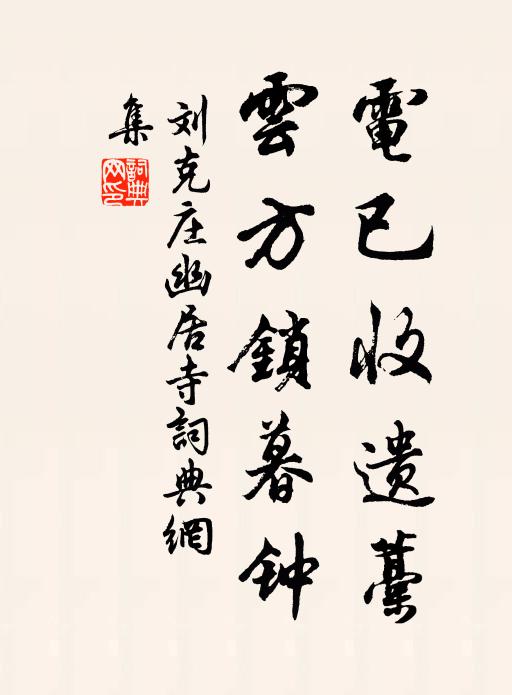 電已收遗藁
雲方鎖暮钟
刘克庄幽居寺詞典網
集
詞典网印